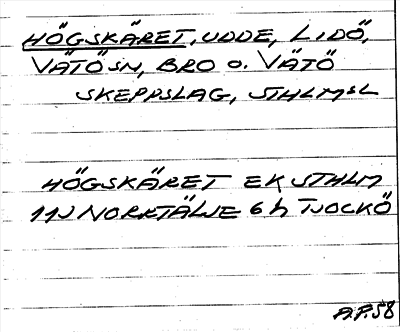 HÖGSKÄRET, UDDE, LIDÖ,
VÄTÖ SN, BRO O. VÄTÖ
SKEPPSLAG, STHLMSL
HÖGSKÄRET EK STHLM
11J NORRTÄLJE 6 h TJOCKÖ
A.P. 58